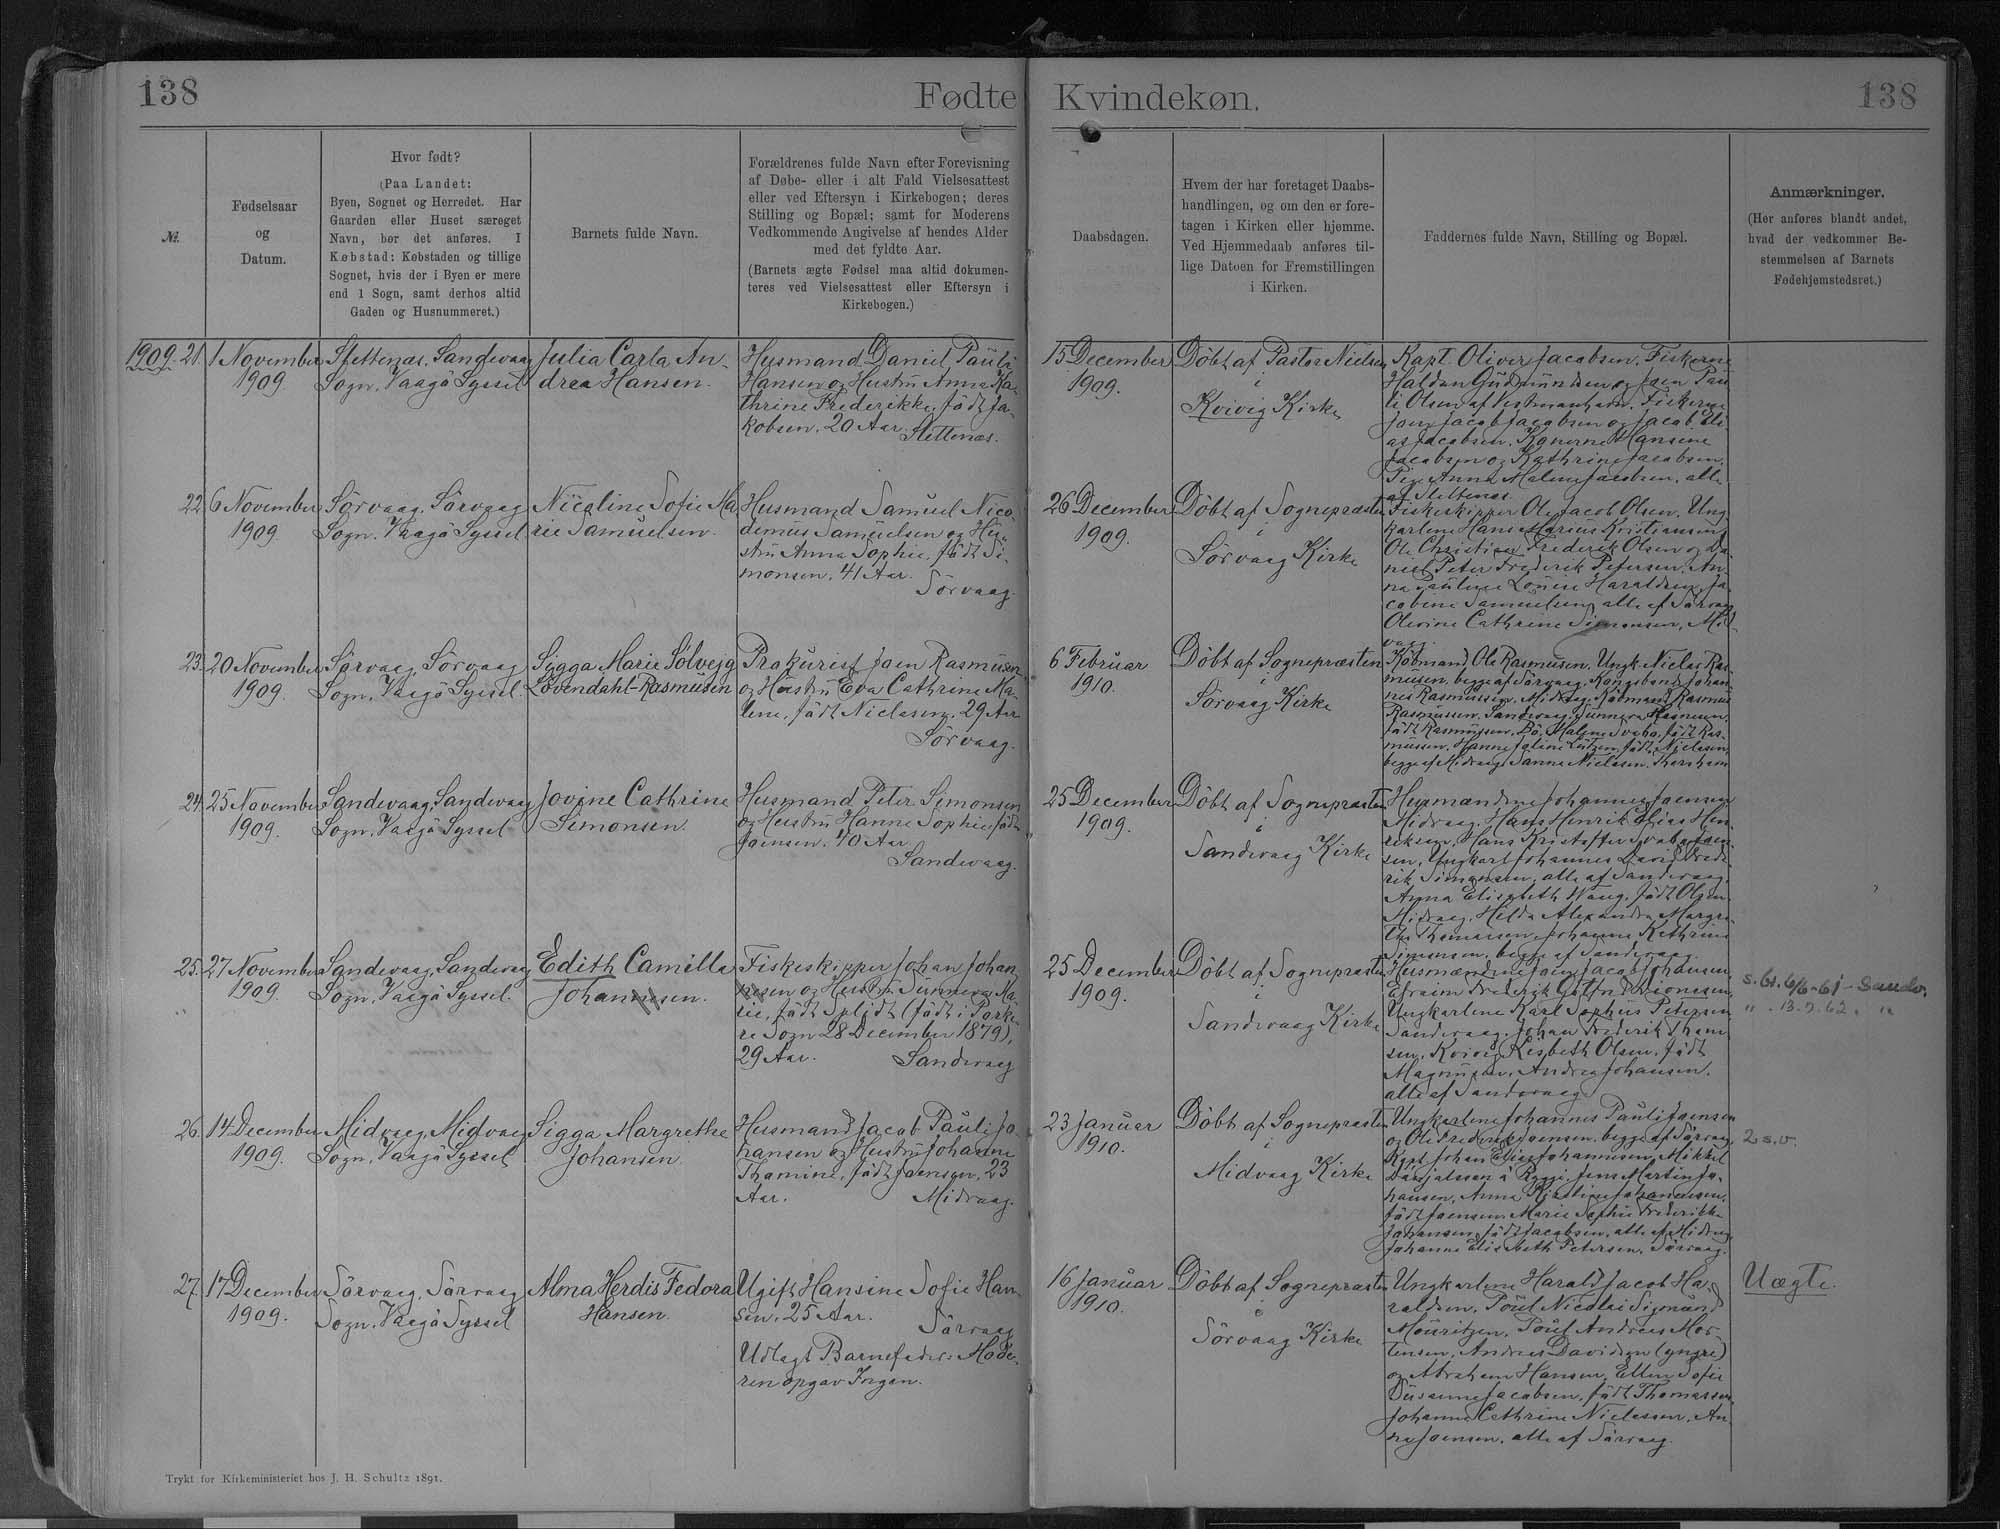 138
Fødte
Kvindekøn.
138
№.
Fødselsaar
og
Datum.
Hvor født?
(Paa Landet:
Byen, Sognet og Herredet. Har
Gaarden eller Huset særeget
Navn, bør det anføres. I
Købstad: Købstaden og tillige
Sognet, hvis der i Byen er mere
end 1 Sogn, samt derhos altid
Gaden og Husnummeret.)
Barnets fulde Navn.
Forældrenes fulde Navn efter Forevisning
af Døbe- eller i alt Fald Vielsesattest
eller ved Eftersyn i Kirkebogen; deres
Stilling og Bopæl; samt for Moderens
Vedkommende Angivelse af hendes Alder
med det fyldte Aar.
(Barnets ægte Fødsel maa altid dokumen-
teres ved Vielsesattest eller Eftersyn i
Kirkebogen.)
Daabsdagen.
Hvem der har foretaget Daabs-
handlingen, og om den er fore-
tagen i Kirken eller hjemme.
Ved Hjemmedaab anføres til-
lige Datoen for Fremstillingen
i Kirken.
Faddernes fulde Navn, Stilling og Bopæl.
Anmærkninger.
(Her anføres blandt andet,
hvad der vedkommer Be-
stemmelsen af Barnets
Fødehjemstedsret.)
1909. 21.
1 November
1909.
Slettenæs, Sandevaag
Sogn, Vaagö Syssel
Julia Carla An-
drea Hansen.
Husmand Daniel Pauli
Hansen og Hustru Anna Ka-
thrine Frederikke, födt Ja-
kobsen, 20 Aar.
Slettenæs.
15 December
1909.
Döbt af Pastor Nielsen
i
Kvivig Kirke
Kapt. Oliver Jacobsen, Fiskerne
Haldan Gudmundsen og Joen Pau-
li Olsen af Vestmanhavn, Fiskerne
Joen Jacob Jacobsen og Jacob Eli-
as Jacobsen, Konerne Hansine
Jacobsen og Kathrine Jacobsen,
Pige Anna Malene Jacobsen, alle
af Slettenæs.
22.
6 November
1909.
Sörvaag, Sörvaag
Sogn, Vaagö Syssel
Nicoline Sofie Ma-
rie Samuelsen.
Husmand Samuel Nico-
demus Samuelsen og Hu-
stru Anna Sophie, födt Si-
monsen, 41 Aar.
Sörvaag.
26 December
1909.
Döbt af Sognepræsten
i
Sörvaag Kirke
Fiskeskipper Ole Jacob Olsen, Ung-
karlene Hans Marius Kristiansen,
Ole Christian Frederik Olsen og Da-
niel Peter Frederik Petersen, An-
na Pauline Louise Haraldsen, Ja-
cobine Samuelsen, alle af Sörvaag,
Olevine Cathrine Simonsen, Mid-
vaag.
23.
20 November
1909.
Sörvaag, Sörvaag
Sogn, Vaagö Syssel
Sygga Marie Solvejg
Lövendahl-Rasmusen
Prokurist Joen Rasmusen
og Hustru Eva Cathrine Ma-
lene, födt Niclasen, 29 Aar
Sörvaag.
6 Februar
1910.
Döbt af Sognepræsten
i
Sörvaag Kirke
Köbmand Ole Rasmusen, Ungk. Niclas Ras-
musen, begge af Sörvaag, Kongsbonde Johan-
nes Rasmussen, Midvaag, Köbmand Rasmus
Rasmussen, Sandevaag, Sunneva
födt Rasmussen, Bö, Malene Svabo, födt Ras-
mussen, Hanne Lützen, födt Niclasen,
begge af Midvaag, Sanna Niclasen, Thorshavn
24.
25 November
1909.
Sandevaag, Sandevaag
Sogn, Vaagö Syssel
Jovine Cathrine
Simonsen.
Husmand Peter Simonsen
og Hustru Hanne Sophie, födt
Joensen, 40 Aar.
Sandevaag.
25 December
1909.
Döbt af Sognepræsten
i
Sandevaag Kirke
Husmændene Johannes Joensen,
Midvaag, Hans Henrik Elias Hen-
riksen, Hans Kristoffer Svabo Joen-
sen, Ungkarl Johannes David Frede-
rik Simonsen, alle af Sandevaag,
Anna Elisabeth Waag, födt Olsen,
Midvaag, Hilda Alexandra Margre-
the Thomasen, Johanne Kathrine
Simonsen, begge af Sandevaag.
25.
27 November
1909.
Sandevaag, Sandevaag
Sogn, Vaagö Syssel.
Edith Camilla
Johannesen.
Fiskeskipper Johan Johan-
nesen og Hustru Sunneva Ma-
rie, födt Splidt (födt i Porke-
re Sogn 28 December 1879),
29 Aar.
Sandevaag
25 December
1909.
Döbt af Sognepræsten
i
Sandevaag Kirke
Husmændene Joen Jacob Johansen,
Efraim Frederik Gottfred Simonsen,
Ungkarlene Karl Sophus Petersen
Sandevaag, Johan Frederik Thom-
sen, Kvivig, Lisbeth Olsen, födt
Magnusen, Andrea Johansen,
alle af Sandevaag
s. 61. 6/6-61 - Sandv.
" . 13.9.62. "
26.
14 December
1909.
Midvaag, Midvaag
Sogn, Vaagö Syssel
Sigga Margrethe
Johansen.
Husmand Jacob Pauli Jo-
hansen og Hustru Johanne
Thomine, födt Joensen, 23
Aar.
Midvaag.
23 Januar
1910.
Döbt af Sognepræsten
i
Midvaag Kirke
Ungkarlene Johannes Pauli Joensen
og Ole Frederik Joensen, begge af Sörvaag,
Kapt. Johan Elias Johannesen, Mikkel
Dánjalsson á Ryggi, Jens Martin Jo-
hansen, Anna Kirstine Johannesen,
födt Joensen, Marie Sophie Frederikke
Johansen, födt Jacobsen, alle af Midvaag,
Johanne Elisabeth Petersen, Sörvaag.
2 s.v.
27.
17 December
1909.
Sörvaag, Sörvaag
Sogn, Vaagö Syssel
Alma Herdis Fedora
Hansen.
Ugift Hansine Sofie Han-
sen, 25 Aar.
Sörvaag
Udlagt Barnefader: Mode-
ren opgav Ingen.
16 Januar
1910.
Döbt af Sognepræsten
i
Sörvaag Kirke
Ungkarlene Harald Jacob Ha-
raldsen, Poul Nicolai Sigmund
Mouritzen, Poul Andreas Mor-
tensen, Andreas Davidsen (yngre)
og Abraham Hansen, Ellen Sofie
Susanne Jacobsen, födt Thomassen,
Johanne Cathrine Niclassen, An-
na Joensen, alle af Sörvaag.
Uægte.
Trykt for Kirkeministeriet hos J. H. Schultz 1891.